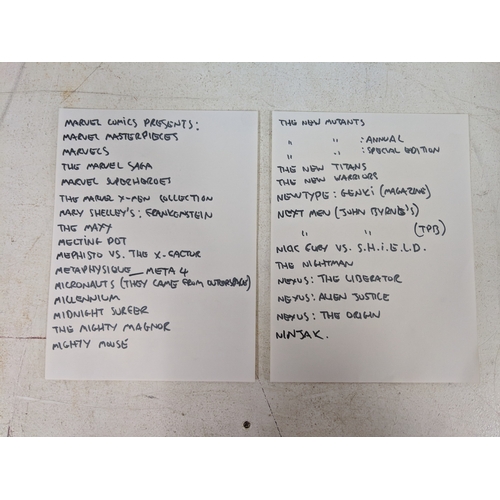 MARVEL COMICS PRESENTS:
MARVEL MASTERPIECES
MARVELS
THE MARVEL SAGA
MARVEL SUPERHEROES
THE MARVEL X-MEN COLLECTION
MARY SHELLEY'S: FRANKENSTEIN
THE MAXX
MELTING POT
MEPHISTO VS. THE X-FACTOR
METAPHYSIQUE META 4
MICRONAUTS (THEY CAME FROM INNERSPACE)
MILLENNIUM
MIDNIGHT SURFER
THE MIGHTY MAGNOR
MIGHTY MOUSE
THE NEW MUTANTS
" " : ANNUAL
" " : SPECIAL EDITION
THE NEW TITANS
THE NEW WARRIORS
NEWTYPE: GENKI (MAGAZINE)
NEXT MEN (JOHN BYRNE'S)
" " (TPB)
NICK FURY VS. S.H.i.E.L.D.
THE NIGHTMAN
NEXUS: THE LIBERATOR
NEXUS: ALIEN JUSTICE
NEXUS: THE ORIGIN
NINJAK.